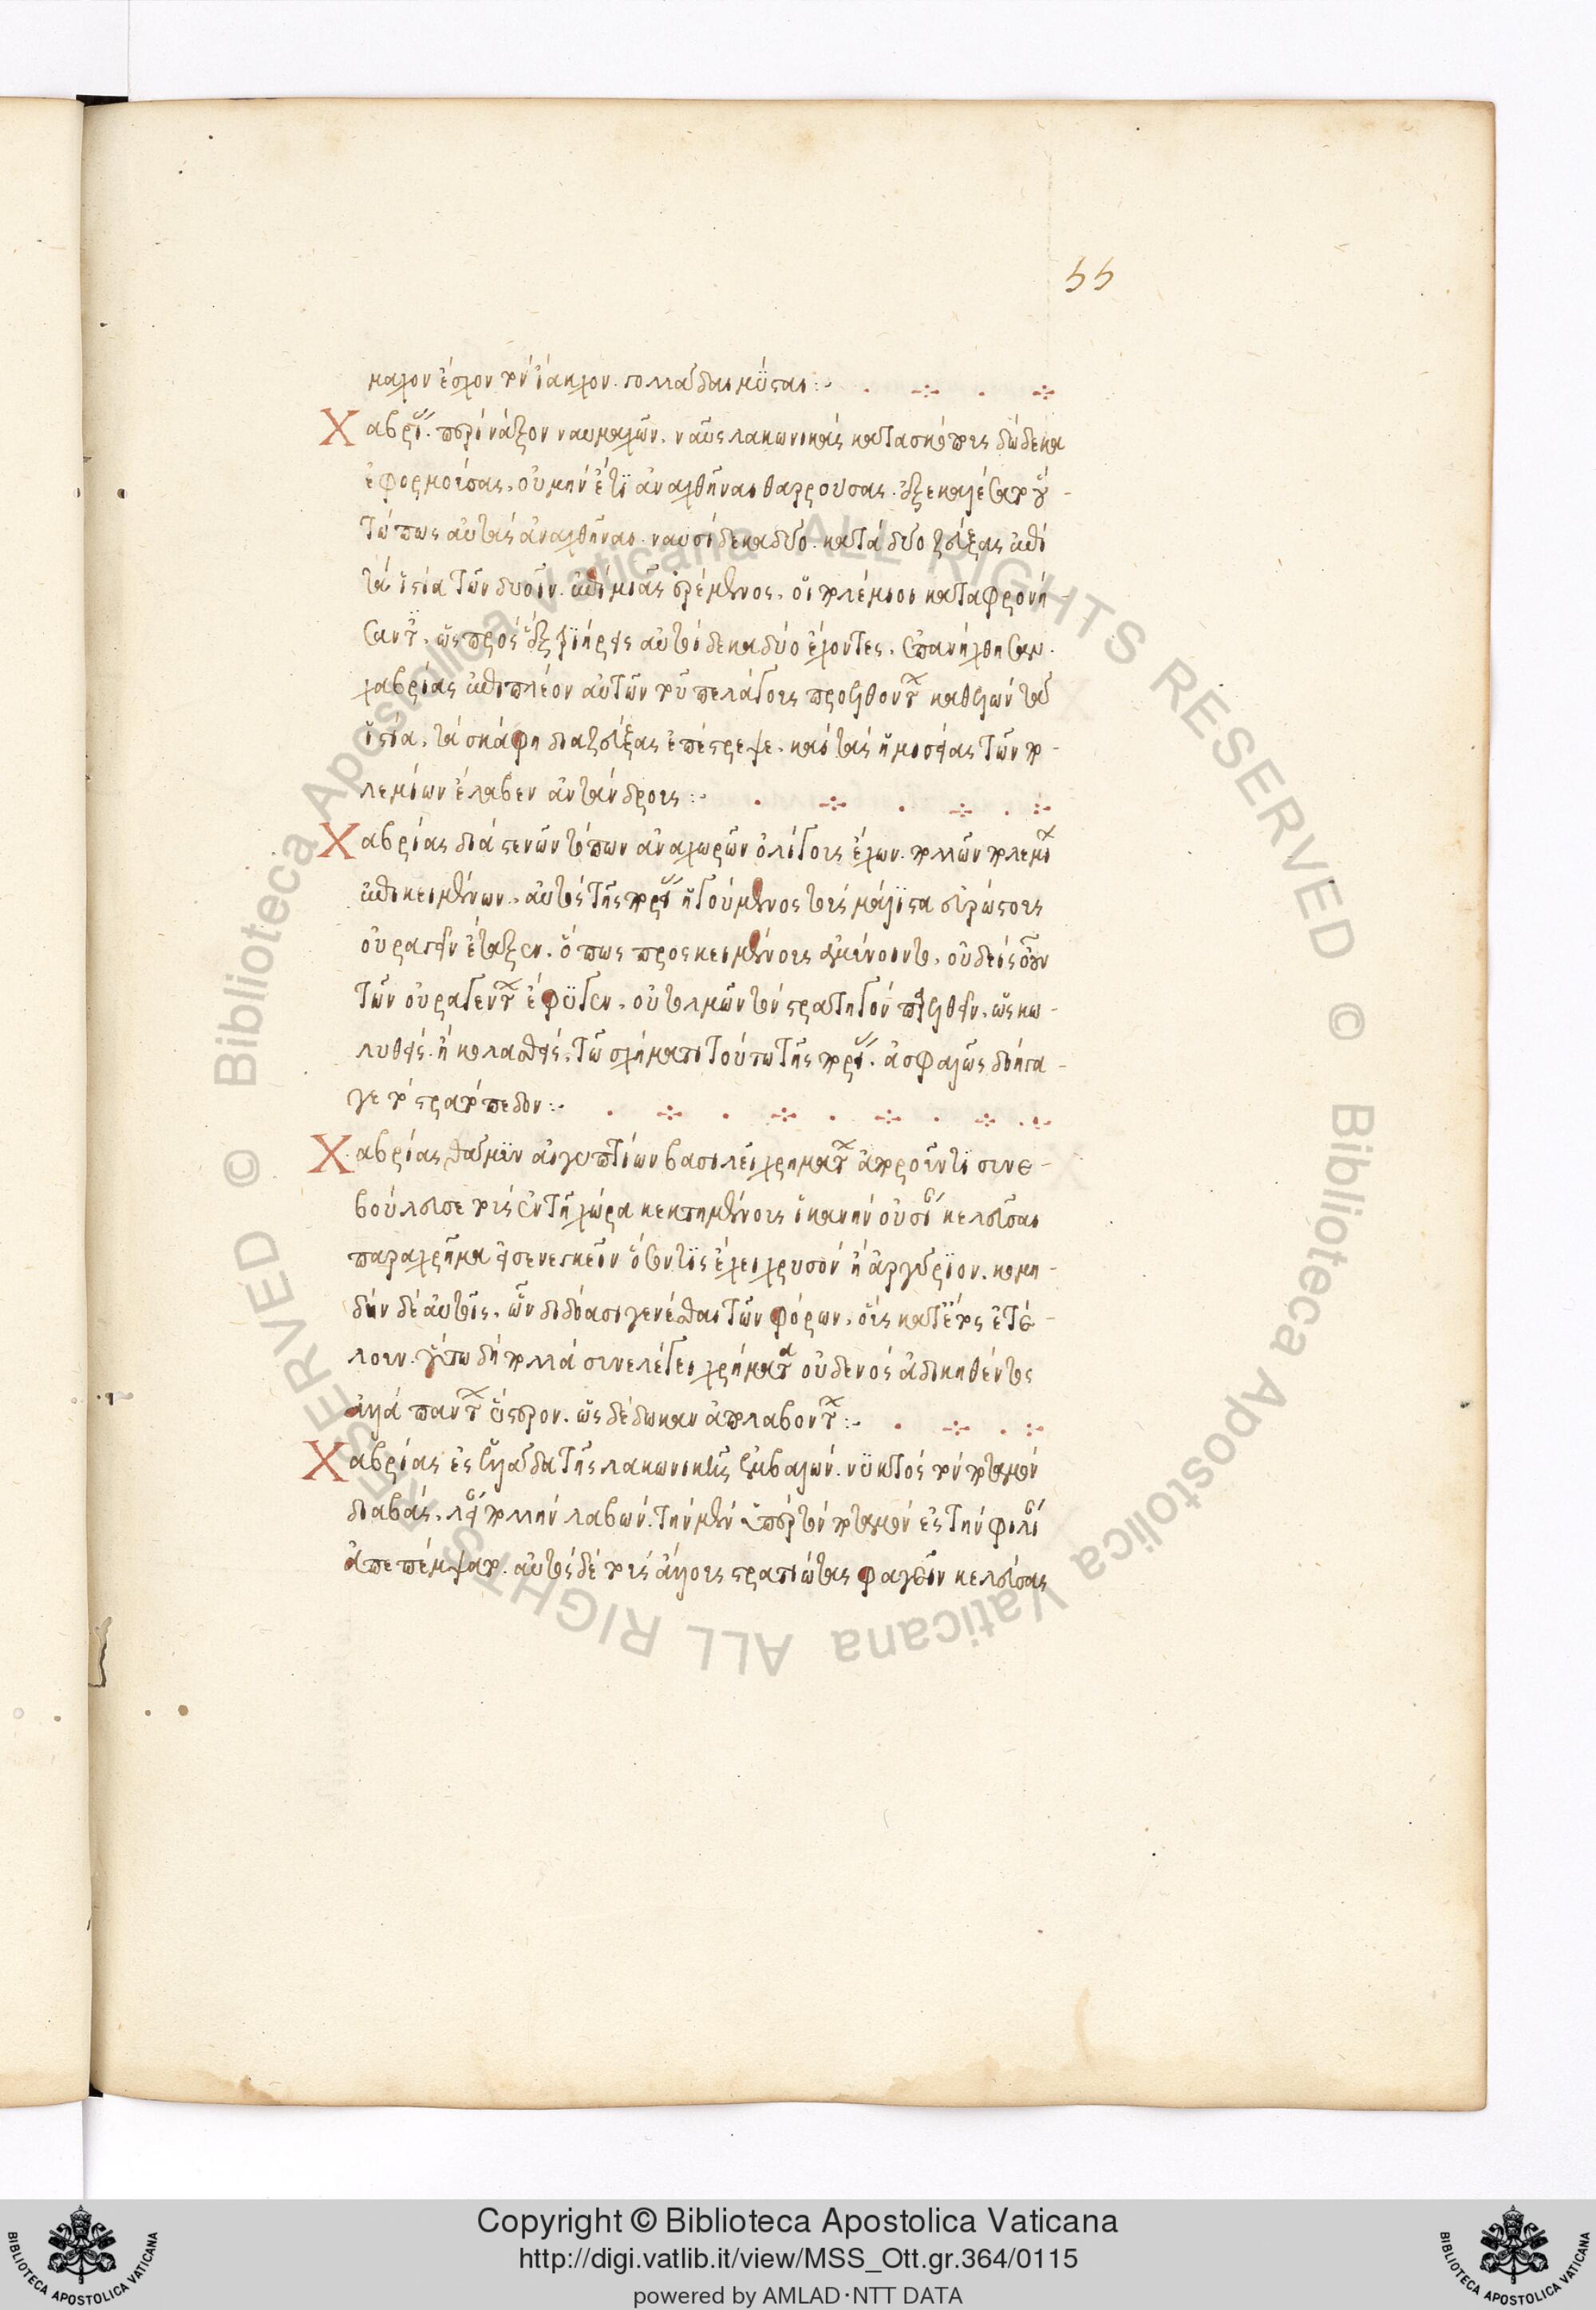 55
μαχον ἔσχον τὸν ἴακχον. πολλάδαι μύσται:
Χαβρίας περὶ νάξον ναυμαχῶν. ναῦς λακωνικὰς κατασκόπους δώδεκα
ἐφορμούσας, οὐ μὴν ἔτι ἀναχθῆναι θαρρούσας. ἐξεκαλέσατο οὕ-
τω πως αὐτὰς ἀναχθῆναι. ναυσὶ δεκαδύο. κατὰ δύο ζεύξας ἐπὶ
τὰ ἱστία τῶν δυοῖν. ἐπὶ μιᾶς ἀράμενος. οἱ πολέμιοι καταφρονή-
σαντες. ὡς πρὸς ἓξ τριήρεις αὐτοὶ δεκαδύο ἔχοντες. ἐπανήχθησαν.
χαβρίας ἐπὶ πλέον αὐτῶν τοῦ πελάγους προελθόντων καθελὼν τὰ
ἱστία. τὰ σκάφη διαζεύξας ἐπέστρεψε. καὶ τὰς ἡμισείας τῶν πο-
λεμίων ἔλαβεν αὐτάνδρους:
Χαβρίας διὰ στενῶν τόπων ἀναχωρῶν ὀλίγους ἔχων. πολλῶν πολεμίων
ἐπικειμένων. αὐτὸς τῆς πορείας ἡγούμενος τοὺς μάλιστα εὐρώστους
οὐραγεῖν ἔταξεν. ὅπως προσκειμένους ἀμύνοιντο. οὐδεὶς οὖν
τῶν οὐραγούντων ἔφυγεν. οὐ τολμῶν τὸν στρατηγὸν παρελθεῖν. ὡς κω-
λυθεὶς. ἢ κολασθεὶς. τῷ σχήματι τούτῳ τῆς πορείας. ἀσφαλῶς διήγα-
γε τὸ στρατόπεδον:
Χαβρίας θαμῒν αἰγυπτίων βασιλεῖ χρημάτων ἀποροῦντι συνε-
βούλευσε τοὺς ἐν τῇ χώρᾳ κεκτημένους ἱκανὴν οὐσίαν κελεῦσαι
παραχρῆμα εἰσενεγκεῖν ὅσον τις ἔχει χρυσὸν ἢ ἀργύριον. κομη-
δὴν δὲ αὐτοῖς. ὧν διδόασι γενέσθαι τῶν φόρων. οἷς κατ ἔτος ἐτέ-
λουν. οὕτω δὴ πολλὰ συνελέγει χρήματα οὐδενὸς ἀδικηθέντος
ἀλλὰ πάντων ὕστερον. ὡς δέδωκαν ἀπολαβόντων:
Χαβρίας ἐς ἐλλάδα τῆς λακωνικῆς ἐμβαλὼν. νυκτὸς τὸν ποταμὸν
διαβὰς. λείαν πολλὴν λαβὼν. τὴν μὲν ὑπὲρ τὸν ποταμὸν ἐς τὴν φιλίαν
ἀπεπέμψατο. αὐτὸς δὲ τοὺς ἄλλους στρατιώτας φαγεῖν κελεύσας
Copyright © Biblioteca Apostolica Vaticana
http://digi.vatlib.it/view/MSS_Ott.gr.364/0115
powered by AMLAD·NTT DATA